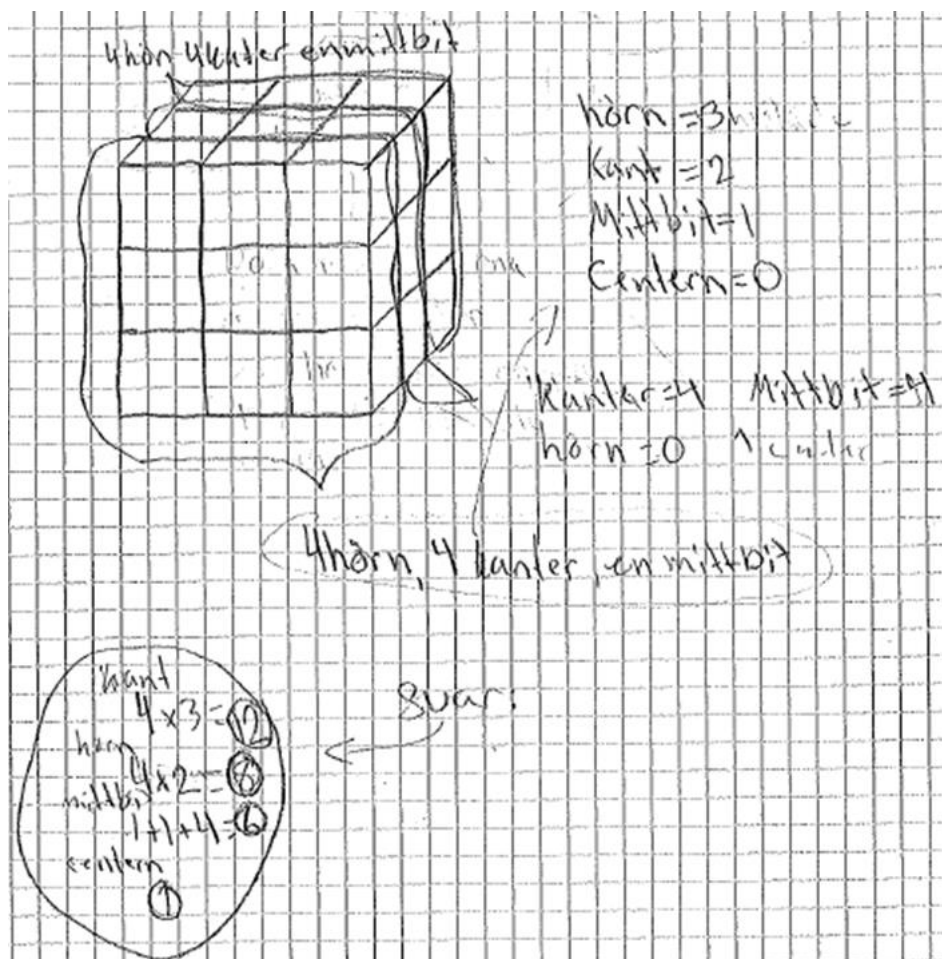 4 hön 4 kater en mittbit
hörn = 3
Kant = 2
Mittbit = 1
Centern = 0
Kanter = 4 Mittbit = 4
hörn = 0 1 center
4 hörn, 4 kanter, en mittbit
svar:
kant
4 x 3 = 12
hörn
4 x 2 = 8
mittbit
1 + 1 + 4 = 6
centern
1